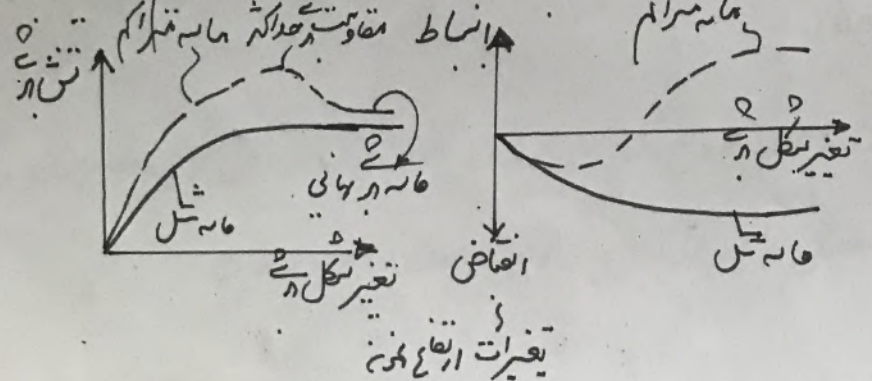 تنش برشی
مقاومت برشی حداکثر ماسه متراکم
ماسه شل
ماسه برشی نهائی
تغییر شکل برشی
انبساط
ماسه متراکم
تغییر شکل برشی
ماسه شل
انقباض
تغییرات ارتفاع نمونه